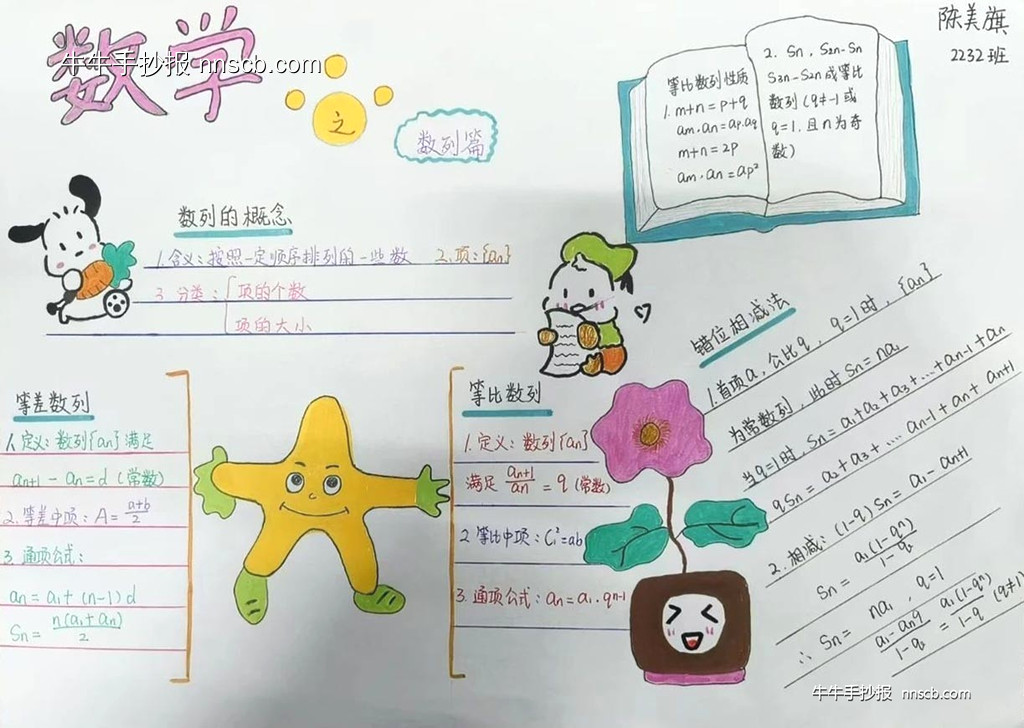 数学
牛牛手抄报 nnscb.com
之
数列篇
陈美旗
2232班
等比数列性质
1. m+n=p+q
am·an=ap·aq
m+n=2p
am·an=ap²
2. Sn, S2n-Sn
S3n-S2n成等比
数列(q≠-1或
q=1.且n为奇
数)
数列的概念
1.含义:按照一定顺序排列的一些数 2.项:{an}
3.分类:{项的个数
项的大小
等差数列
1.定义:数列{an}满足
an+1-an=d(常数)
2.等差中项:A=a+b/2
3.通项公式:
an=a1+(n-1)d
Sn=n(a1+an)/2
等比数列
1.定义:数列{an}
满足an+1/an=q(常数)
2等比中项:C²=ab
3.通项公式:an=a1·qn-1
错位相减法
1.首项a,公比q,q=1时,{an}
为常数列,此时Sn=na1
当q=1时,Sn=a1+a2+a3+...+an-1+an
qSn=a2+a3+...an-1+an+an+1
2.相减:(1-q)Sn=a1-an+1
Sn=a1(1-qⁿ)/1-q
∴Sn=na1,q=1
a1-anq/1-q=a1(1-qⁿ)/1-q(q≠1)
牛牛手抄报 nnscb.com